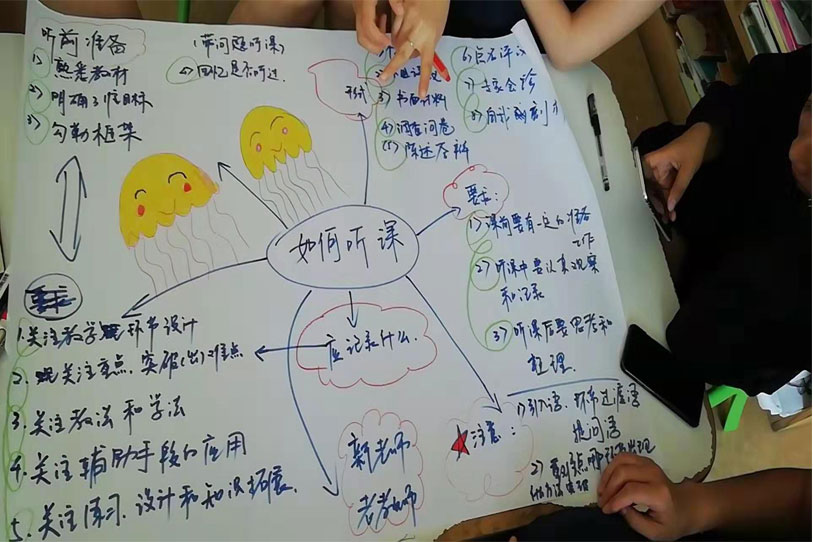 听前准备
1) 熟悉教材
2) 明确三维目标
3) 勾勒框架
(带问题听课)
4) 回忆是否听过
形式
3) 书面材料
4) 调查问卷
(5) 陈述答辩
6) 点名评议
7) 专家会诊
8) 自我剖析
如何听课
要求:
1) 课前要有一定的准备
工作
2) 听课中要认真观察
和记录
3) 听课后要思考和
整理.
应记录什么.
1. 关注教学环节设计
2. 关注重点、突破(出)难点
3. 关注教法和学法
4. 关注辅助手段的应用
5. 关注练习、设计和知识拓展.
新老师
老教师
注意:
1) 引入语、环节过渡语
提问语
2)